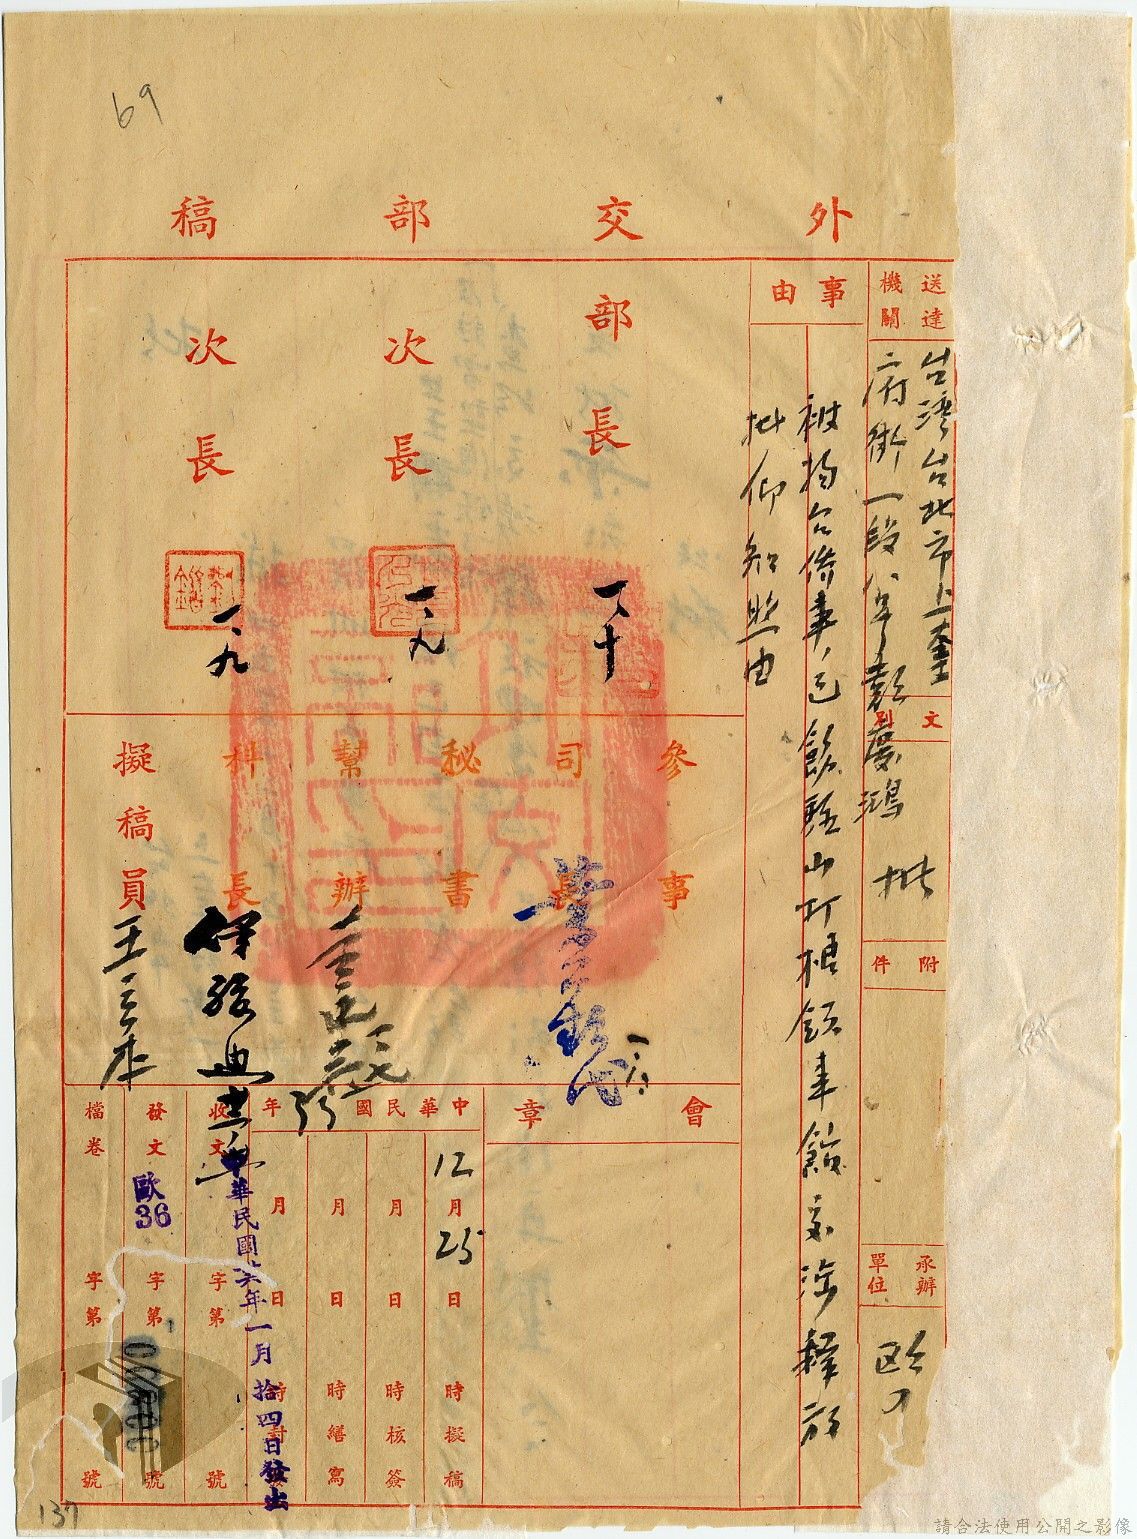 69
外交部稿
送達機關
台灣台北市上奎
府街一段
慶鴻
文別
批
附件
承辦單位
歐
事由
被拘台僑事已飭駐山打根領事館交涉釋放
批仰知照由
部長
一、十
次長
一、九
次長
一、九
參事
司長
代
一、八
秘書
幫辦
科長
擬稿員
王
會章
中華民國 35 年
12月25日 時擬稿
月 日 時核簽
月 日 時繕寫
月 日 時
收文 字第 號
中華民國卅六年一月拾四日發出
發文 歐36 字第 號
檔卷 字第 號
137
請合法使用公開之影像